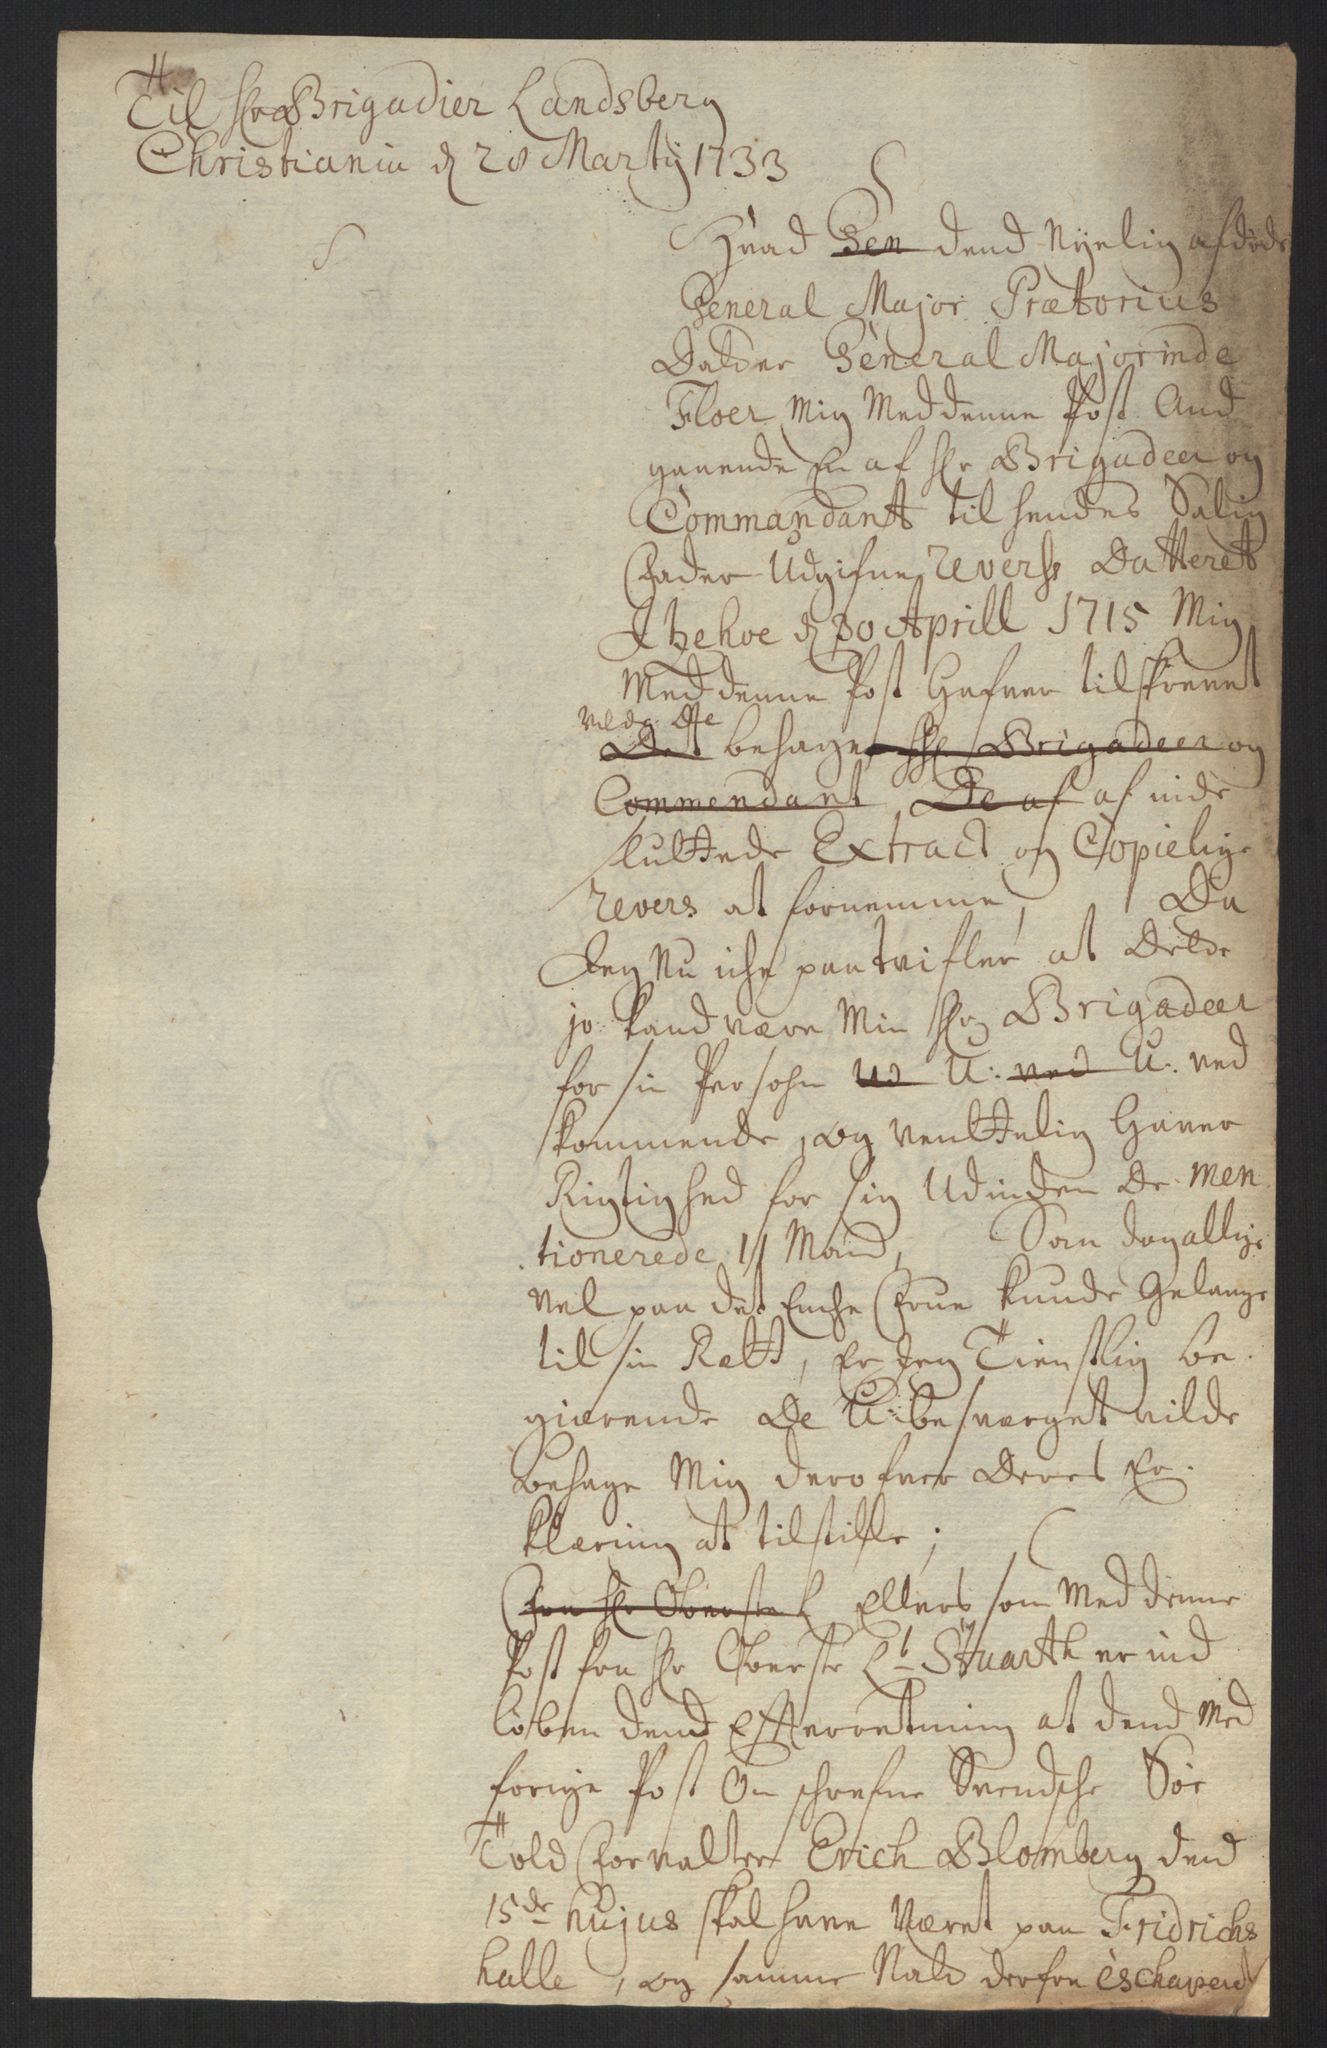 Til Hr Brigadier Landsberg
Christiania d 28 Martij 1733
Hvad Gen dend Nyelig afdøde
General Major Prætorius
Datter General Majorinde
Floer Mig Med denne Post And
gaaende En af Hr Brigadeer og
Commandant til hendes Salig
Fader Udgifne Reverss Datteret
Itzehoe d 30 Aprill 1715 Mig
Med denne Post Hafver tilskrevet
vilde De
Det behage Hr Brigadeer og
Commendant De af af inde
sluttede Extract og Copielige
Revers at fornemme, Da
Jeg Nu iche paatvifler at Dette
jo kand være Min Hr Brigadeer
for sin Persohn Ud U: ved U: ved
kommende, og Venttelig Haver
Rigtighed for sig Udinden De Men
tionerede 11 Mand, Som dog allige
vel paa det Enche Frue kunde Gelange
til sin Rett, Er Jeg Tienstlig be
gierende De U-besværget vilde
behage Mig derofver Deres Er
klæring at tilstille;
Fra Hr Oberste L Ellers som Med denne
Post fra Hr Oberste Lt Stuarth er ind
løben dend Efterretning at dend Med
forige Post Om schrefne Svendsche Söe
Told Forvalter Erich Blomberg dend
15de hujus skal have Været paa Fridrichs
halle, og samme Natt derfra echaperet